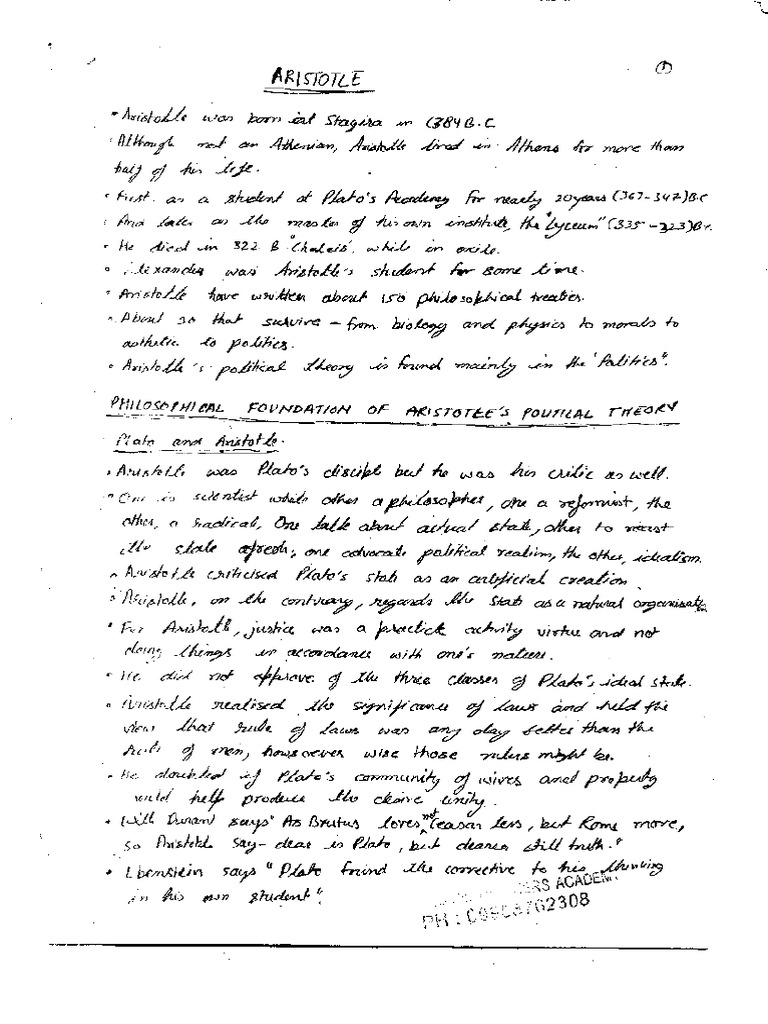 ARISTOTLE
①
• Aristotle was born in at Stagira in (384 B.C
• Although not an Athenian, Aristotle lived in Athens for more than
half of his life.
• First as a student at Plato's Academy for nearly 20 years (367-347) B.C
• And later as the master of his own institute, the "Lyceum" (335-323) B.C.
• He died in 322 B "Chalcis", while in exile.
• Alexander was Aristotle's student for some time.
• Aristotle have written about 150 philosophical treaties.
• About 30 that survive - from biology and physics to morals to
asthetic to politics.
• Aristotle's political theory is found mainly in the "Politics".
PHILOSOPHICAL FOUNDATION OF ARISTOTLE'S POLITICAL THEORY
Plato and Aristotle.
• Aristotle was Plato's discipl but he was his critic as well.
• One is scientist while other a philosopher, one a reformist, the
other, a radical, One talk about actual state, other to
the state afresh; one advocate political realism, the other, idealism.
• Aristotle criticised Plato's stats as an artificial creation.
• Aristotle, on the contrary, regards the stats as a natural organisation.
• For Aristotle, justice was a practick activity virtue and not
doing things in accordance with one's nature.
• He did not approve of the three classes of Plato's ideal state.
• Aristotle realised the significance of laws and held the
view that rule of laws was any day better than the
rule of men, howsoever wise those rulers might be.
• He doubted if Plato's community of wives and property
would help produce the desire unity.
• Will Durant says "As Brutus loves not Ceasar less, but Rome more,
so Aristotle say - dear is Plato, but dearer still truth."
• Ebenstein says "Plato found the corrective to his thinking
in his own student".
ACADEMY
PH :